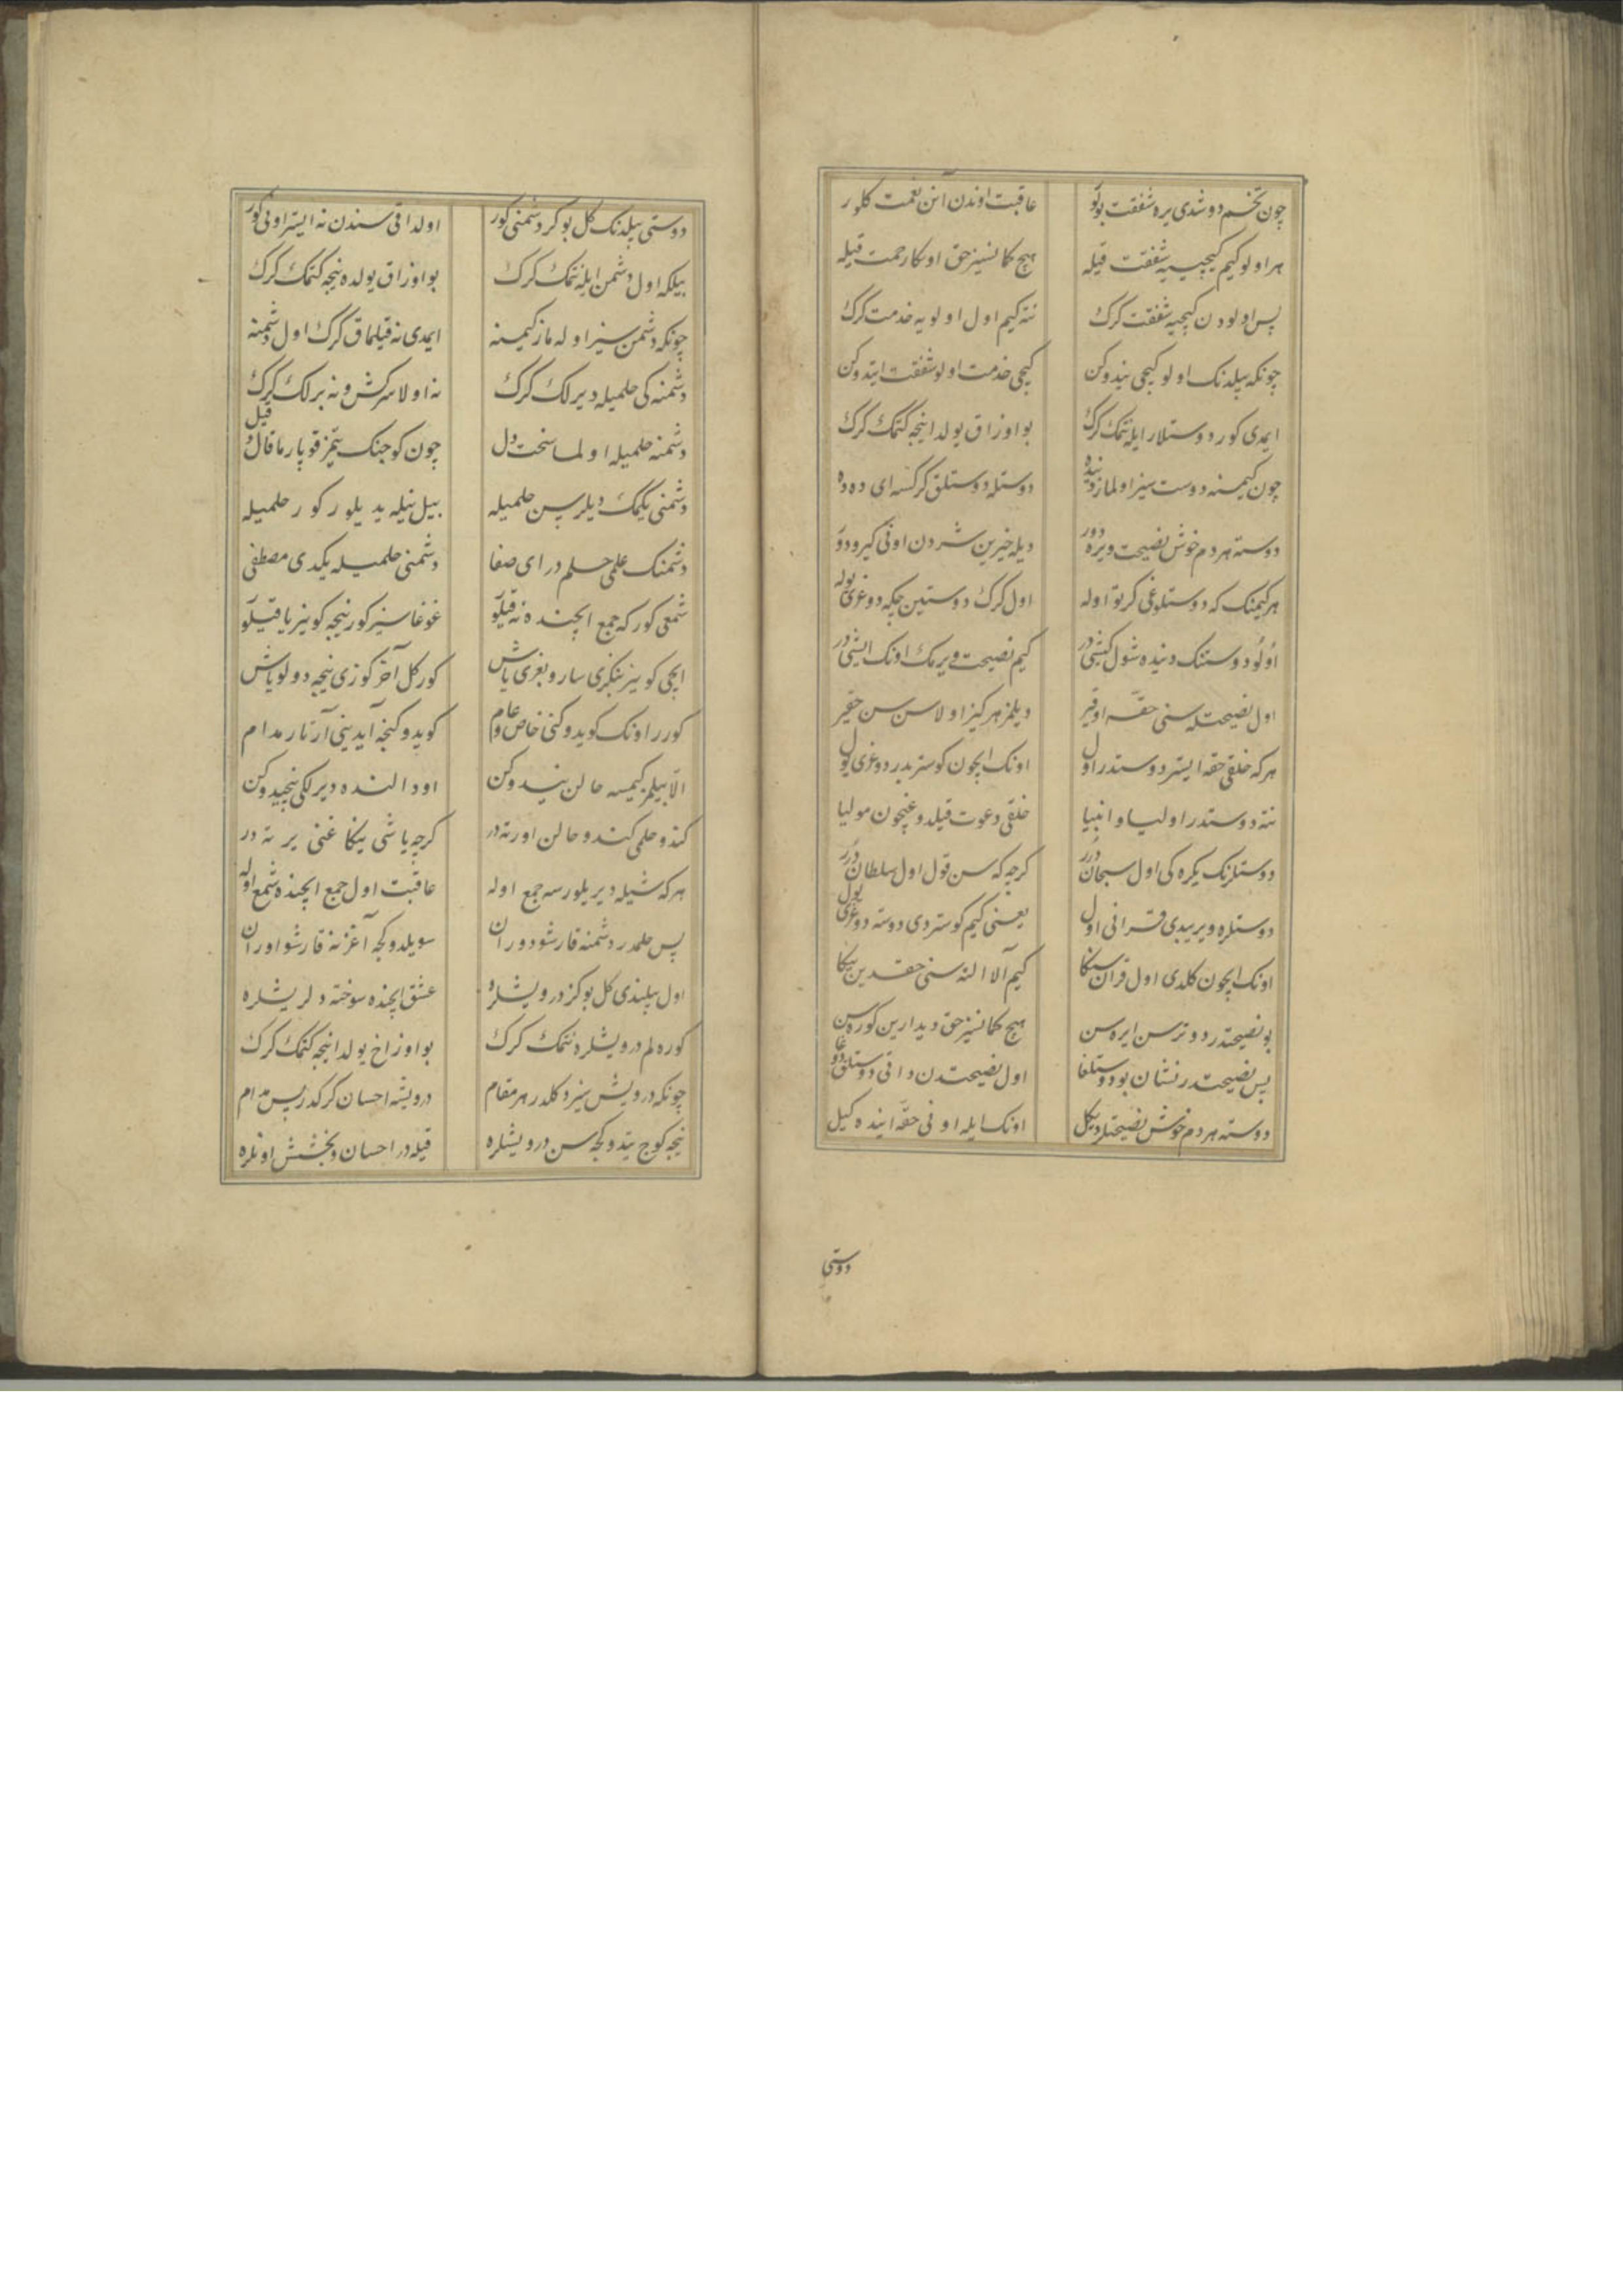 چون تخم دوشدی یره شفقت بولو عاقبت اوندن آنن نعمت کلور
هر اولو کیم کیجییه شفقت قیله هیچ کمانسیز حق اوکا رحمت قیله
پس اولودن کیجیه شفقت کرک نته کیم اول اولویه خدمت کرک
چونکه بیلدنک اولو کیجی نیدوکن کیجی خدمت اولو شفقت ایتدوکن
ایمدی کور دوستلار ایله نتمک کرک بو اوزاق یولدا نیجه کتمک کرک
چون کیمسنه دوست سیز اولماز دنیده دوستله دوستلق کرکسه ای دده
دوسته هر دم خوش نصیحت ویره دور دیله خیرین شردن اونی کیرو دور
هر کیمنک که دوستلوغی کرتو اوله اول کرک دوستین چکه دوغری یوله
اولو دوستنک دنیده شول کیشیدر کیم نصیحت ویرمک اونک ایشیدر
اول نصیحتله سنی حقه اوقیر دیلمز هر کیز اولاسن سن حقیر
هر که خلقی حقه ایستر دوستدر اول اونک ایچون کوستریدر دوغری یول
نته دوستدر اولیا و انبیا خلقی دعوت قیلدوغیچون مولیا
دوستلرنک یکره کی اول سبحان درر کرچه که سن قول اول سلطان درر
دوستلره ویریبدی قرانی اول یعنی کیم کوستردی دوسته دوغری یول
اونک ایچون کلدی اول قرآن سنکا کیم آلا النه سنی حقدین یکا
بو نصیحتدر دوترسن ایره سن هیچ کمانسیز حق دیدارین کوره سن
پس نصیحتدر نشان بو دوستلغا اول نصیحتدن داقی دوستلق دوغا
دوسته هر دم خوش نصیحتلر دیکل اونک ایله اونی حقه اینده کیل
دوستی
دوستی بیلدنک کل بو کر دشمنی کور اول داقی سندن نه ایستر اونی کور
بیلکه اول دشمن ایله نتمک کرک بو اوزاق یولده نیجه کتمک کرک
چونکه دشمن سیز اوله ماز کیمینه ایمدی نه قیلماق کرک اول دشمنه
دشمنه کی حلمیله دیرلک کرک نه اولا سرکش و نه برلک کرک
دشمنه حلمیله اولما سخت دل چون کوجنک یتمز قوپارما قال و قیل
دشمنی یکمک دیلرسن حلمیله بیل نیله یدیلور کور حلمیله
دشمنک علمی حلم در ای صفا دشمنی حلمیله یکدی مصطفی
شمعی کور که جمع ایچنده نه قیلو غوغاسیز کور نیجه کوینر یاقیلو
ایچی کوینر بنکزی سارو بغری باش کور کل آخر کوزی نیجه دولو یاش
کورر اونک کویدوکنی خاص و عام کویدوکنجه آیدینی آرتار مدام
الا بیلمز کیمسه حالن نیدوکن اود النده دیرلکی نیجیدوکن
کندو حلمی کندو حالن اورته در کرچه یاشی ینکاغنی یرته در
هر که شیله دیریلورسه جمع اوله عاقبت اول جمع ایچنده شمع اوله
پس حلمدر دشمنه قارشو دوران سویلدوکجه آغزنه قارشو اوران
اول بیلندی کل بو کز درویشلره عشق ایچنده سوخته دلریشلره
کوره لم درویشلره نتمک کرک بو اوزاخ یولدا نیجه کتمک کرک
چونکه درویش سیز دکلدر هر مقام درویشه احسان کرکدر پس مدام
نیجه کوج یتدوکجه سن درویشلره قیله در احسان و بخشش اونلره